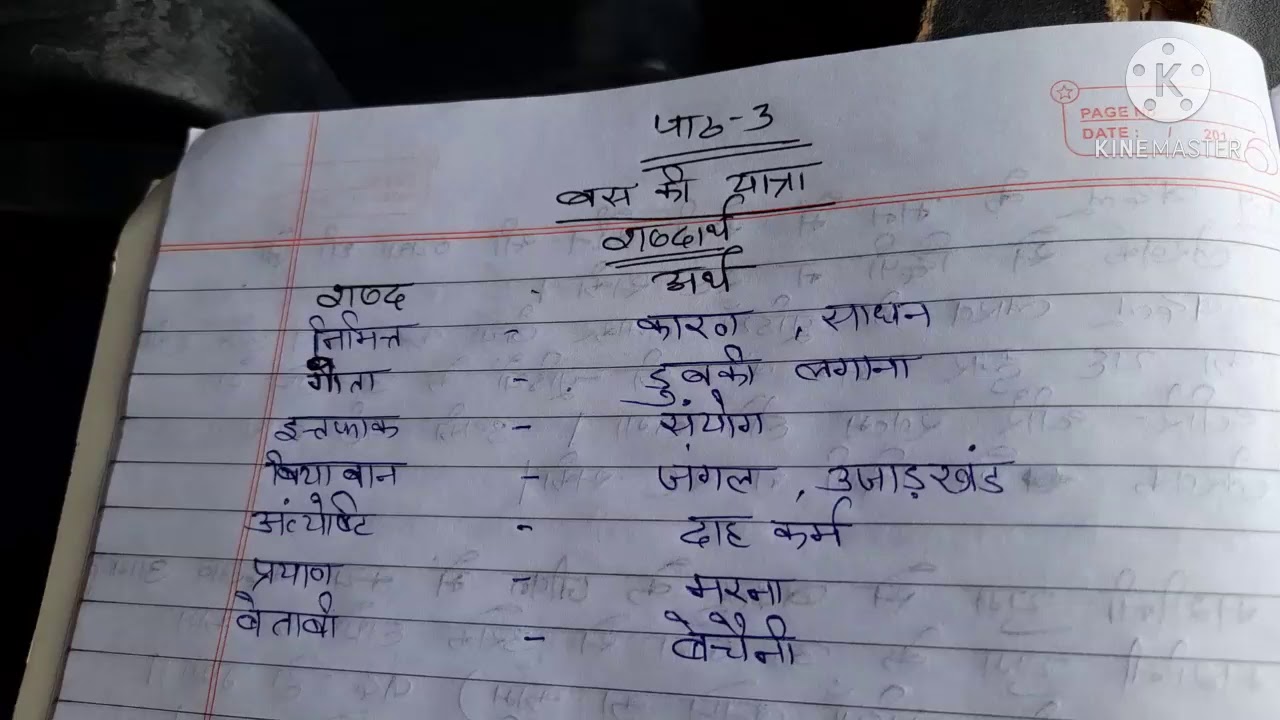 PAGE N
DATE: / 201
K
KINEMASTER
पाठ-3
बस की यात्रा
शब्दार्थ
शब्द - अर्थ
निमित्त - कारण, साधन
गोता - डुबकी लगाना
इत्तफाक - संयोग
बियाबान - जंगल, उजाड़खंड
अंत्येष्टि - दाह कर्म
प्रयाण - मरना
बेताबी - बेचैनी